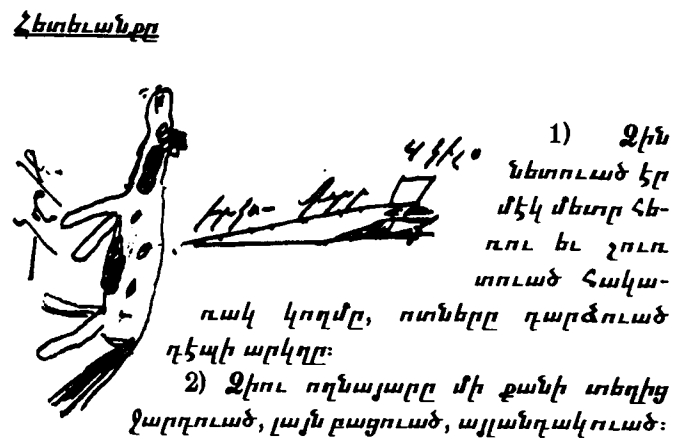 Հետեւանքը
1) Ձին
նետուած էր
մէկ մետր հե-
ռու եւ շուռ
տուած հակա-
ռակ կողմը, ոտները դարձուած
դէպի արկղը:
2) Ձիու ողնայարը մի քանի տեղից
ջարդուած, լայն բացուած, այլանդակուած: